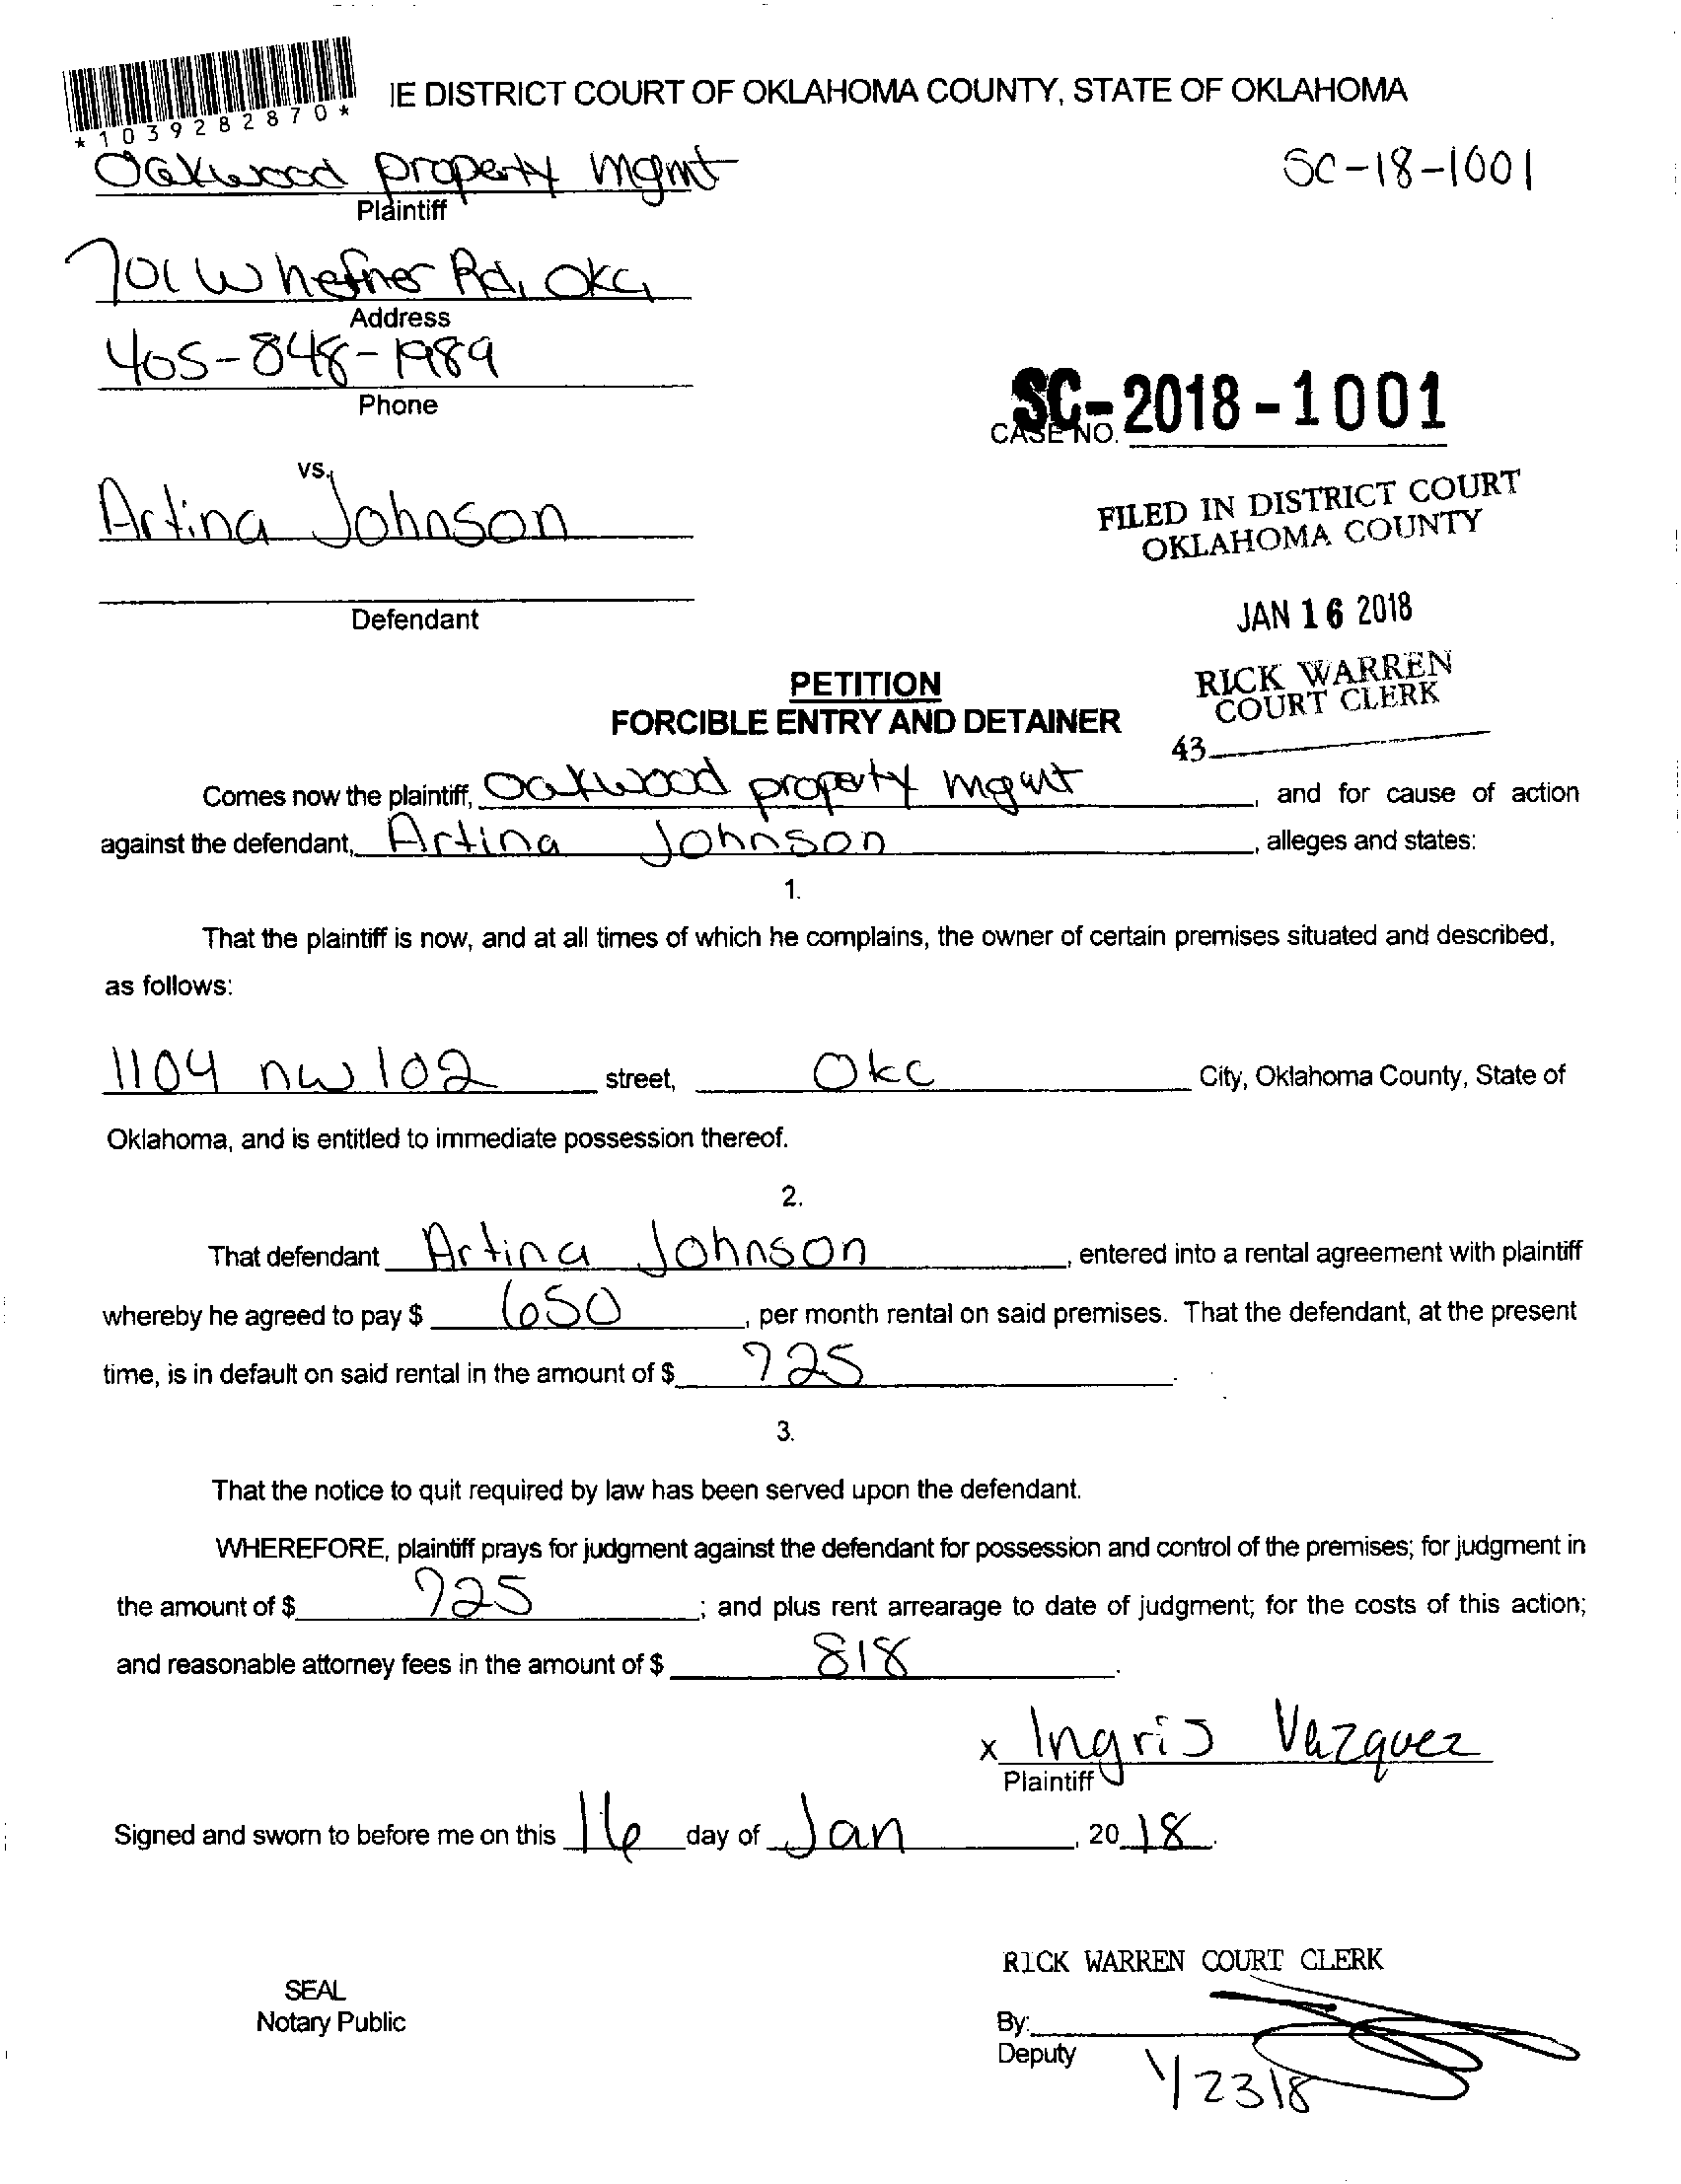 *1039282870*
IE DISTRICT COURT OF OKLAHOMA COUNTY, STATE OF OKLAHOMA
Oakwood property mgmt
SC-18-1001
Plaintiff
701 W hefner Rd, OKC
Address
405-848-1989
Phone
SC-2018-1001
CASE NO.
vs.
Artina Johnson
FILED IN DISTRICT COURT
OKLAHOMA COUNTY
Defendant
JAN 16 2018
PETITION
RICK WARREN
COURT CLERK
FORCIBLE ENTRY AND DETAINER
43
Comes now the plaintiff, Oakwood property mgmt, and for cause of action
against the defendant, Artina Johnson, alleges and states:
1.
That the plaintiff is now, and at all times of which he complains, the owner of certain premises situated and described,
as follows:
1104 nw 102 street, Okc City, Oklahoma County, State of
Oklahoma, and is entitled to immediate possession thereof.
2.
That defendant Artina Johnson, entered into a rental agreement with plaintiff
whereby he agreed to pay $ 650, per month rental on said premises. That the defendant, at the present
time, is in default on said rental in the amount of $ 725.
3.
That the notice to quit required by law has been served upon the defendant.
WHEREFORE, plaintiff prays for judgment against the defendant for possession and control of the premises; for judgment in
the amount of $ 725; and plus rent arrearage to date of judgment; for the costs of this action;
and reasonable attorney fees in the amount of $ 818.
x Ingris Vazquez
Plaintiff
Signed and sworn to before me on this 16 day of Jan, 20 18.
RICK WARREN COURT CLERK
SEAL
Notary Public
By:
Deputy
1/23/18